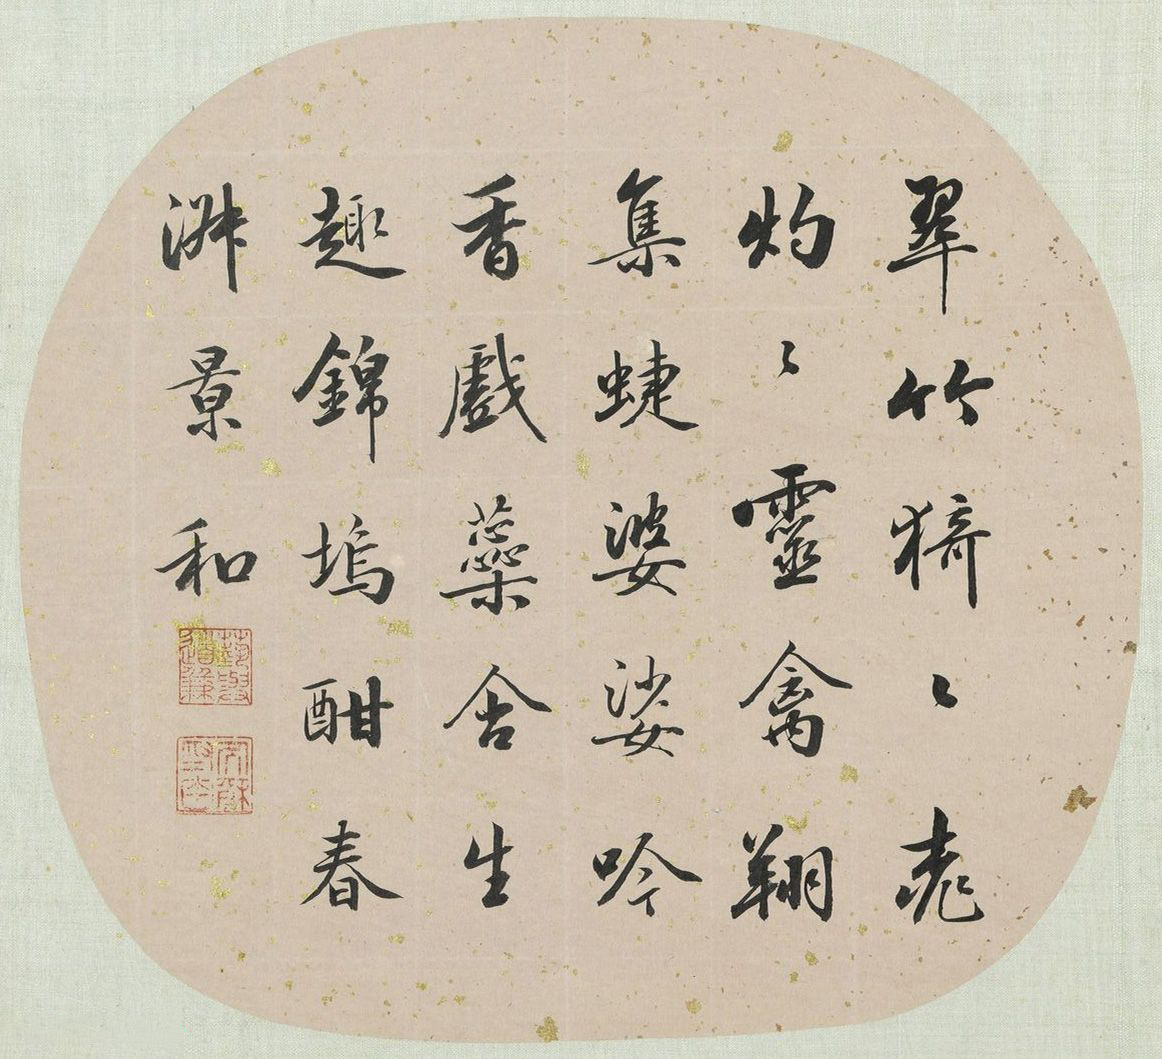 翠竹猗〻桃
灼〻靈禽翔
集蜨婆娑吟
香戲蘂含生
趣錦塢酣春
淑景和